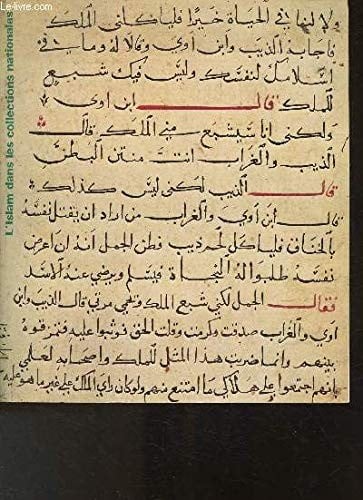 © Le-livre.com
L'Islam dans les collections nationales
ولا لنا في الحياة خيرًا فلياكلني الملك
فاجابه الذيب وابن اوي وقالا له وما في
اسلامك لنفسك وليس فيك شبع
للملك قال ابن اوي
ولكني انا سيشبع مني الملك قال
الذيب والغراب انت منتن البطن
قال الذيب لكني ليس كذلك
قال ابن آوي والغراب من اراد ان يقتل نفسه
بالخناق فلياكل لحم ذيب فظن الجمل انه ان اعرض
نفسه طلبوا له النجاة فيسلم ويرضي عنه الاسد
فقال الجمل لكني شبع الملك ولحمي مري قال الذيب وابن
اوي والغراب صدقت وكرمت وقلت الحق فوثبوا عليه فمزقوه
بينهم وانما ضربت هذا المثل للملك واصحابه لعلمي
بانهم اجتمعوا علي هلاكي ما امتنع منهم ولو كان راي الملك علي غير ما هو عليه